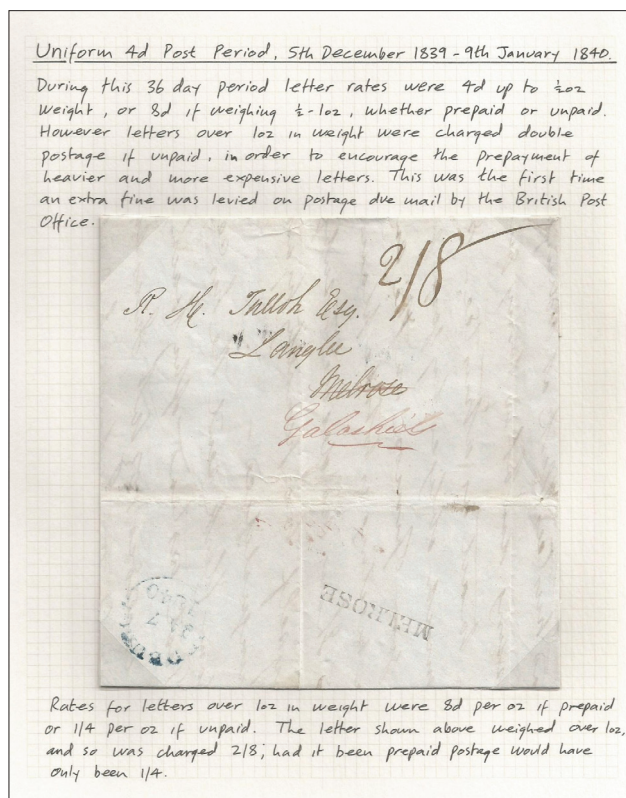 Uniform 4d Post Period, 5th December 1839 - 9th January 1840.
During this 36 day period letter rates were 4d up to ½oz
weight, or 8d if weighing ½-1oz, whether prepaid or unpaid.
However letters over 1oz in weight were charged double
postage if unpaid, in order to encourage the prepayment of
heavier and more expensive letters. This was the first time
an extra fine was levied on postage due mail by the British Post
Office.
2/8
R. H. Tulloh Esq.
Langlee
Melrose
Galashiels
JA 7
1840
MELROSE
Rates for letters over 1oz in weight were 8d per oz if prepaid
or 1/4 per oz if unpaid. The letter shown above weighed over 1oz,
and so was charged 2/8, had it been prepaid postage would have
only been 1/4.